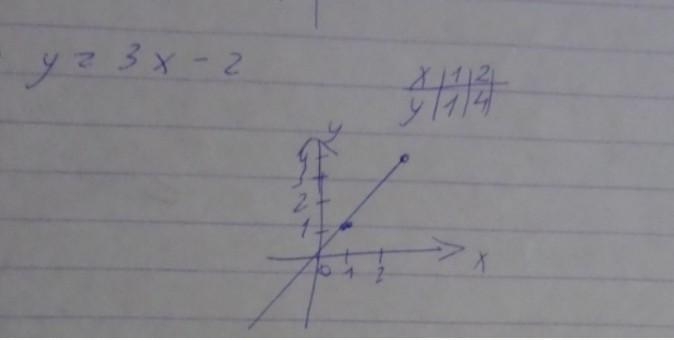 y = 3x - 2
x | 1 | 2 |
y | 1 | 4 |
y
4
3
2
1
0 1 2
x